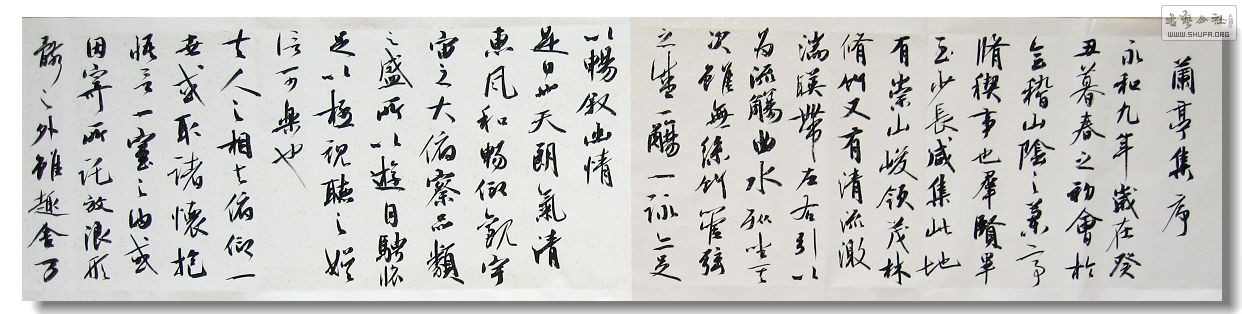 蘭亭集序
永和九年歲在癸
丑暮春之初會於
會稽山陰之蘭亭
脩稧事也羣賢畢
至少長咸集此地
有崇山峻領茂林
脩竹又有清流激
湍暎帶左右引以
為流觴曲水列坐其
次雖無絲竹管弦
之盛一觴一詠亦足
以暢敘幽情
是日也天朗氣清
惠風和暢仰觀宇
宙之大俯察品類
之盛所以遊目騁懷
足以極視聽之娛
信可樂也
夫人之相與俯仰一
世或取諸懷抱
悟言一室之內或
因寄所託放浪形
骸之外雖趣舍萬
書藝公社
WWW.SHUFA.ORG